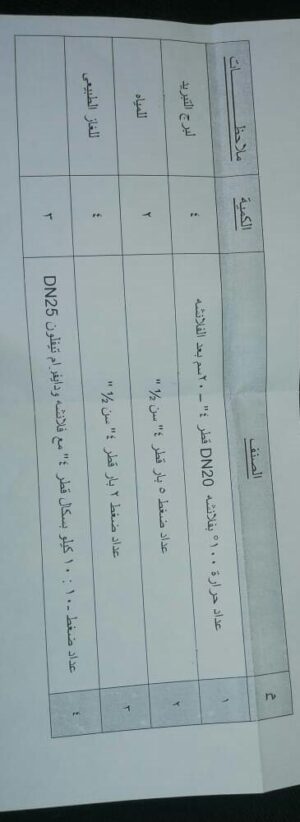 م الصنف الكمية ملاحظـــــات
١ عداد حرارة ١٠٠° بفلانشه DN20 قطر ٤" – ٢٠سم بعد الفلانشه ٤ لبرج التبريد
٢ عداد ضغط ٥ بار قطر ٤" سن ½" ٢ للمياه
٣ عداد ضغط ٢ بار قطر ٤" سن ½" ٤ للغاز الطبيعى
٤ عداد ضغط -١٠ : ١٠ كيلو بسكال قطر ٤" مع فلانشه ودايفرام تيفلون DN25 ٣